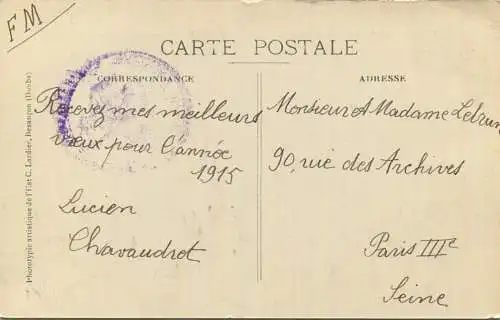 FM
CARTE POSTALE
CORRESPONDANCE
Recevez mes meilleurs
vœux pour l'année
1915
Lucien
Chavaudrot
ADRESSE
Monsieur et Madame Lebrun
90, rue des Archives
Paris IIIe
Seine
Phototypie artistique de l'Est C. Lardier, Besançon (Doubs)